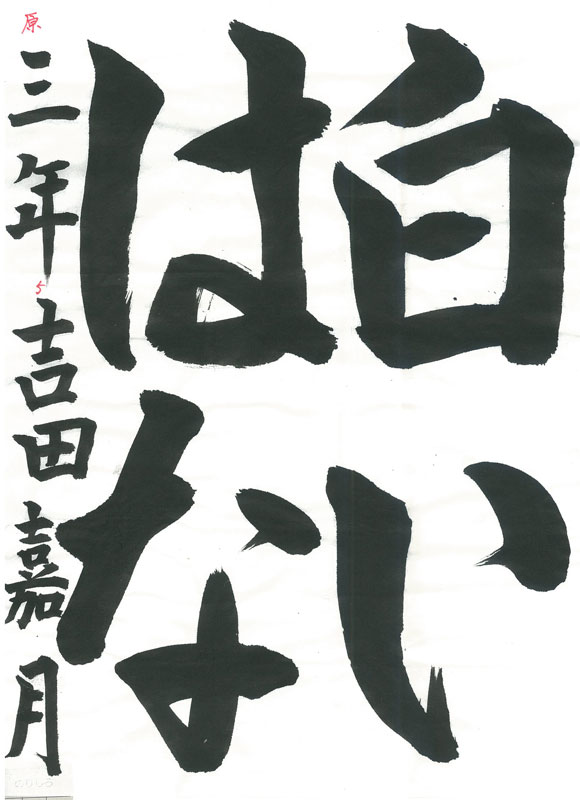 白い
はな
三年吉田嘉月
原
5